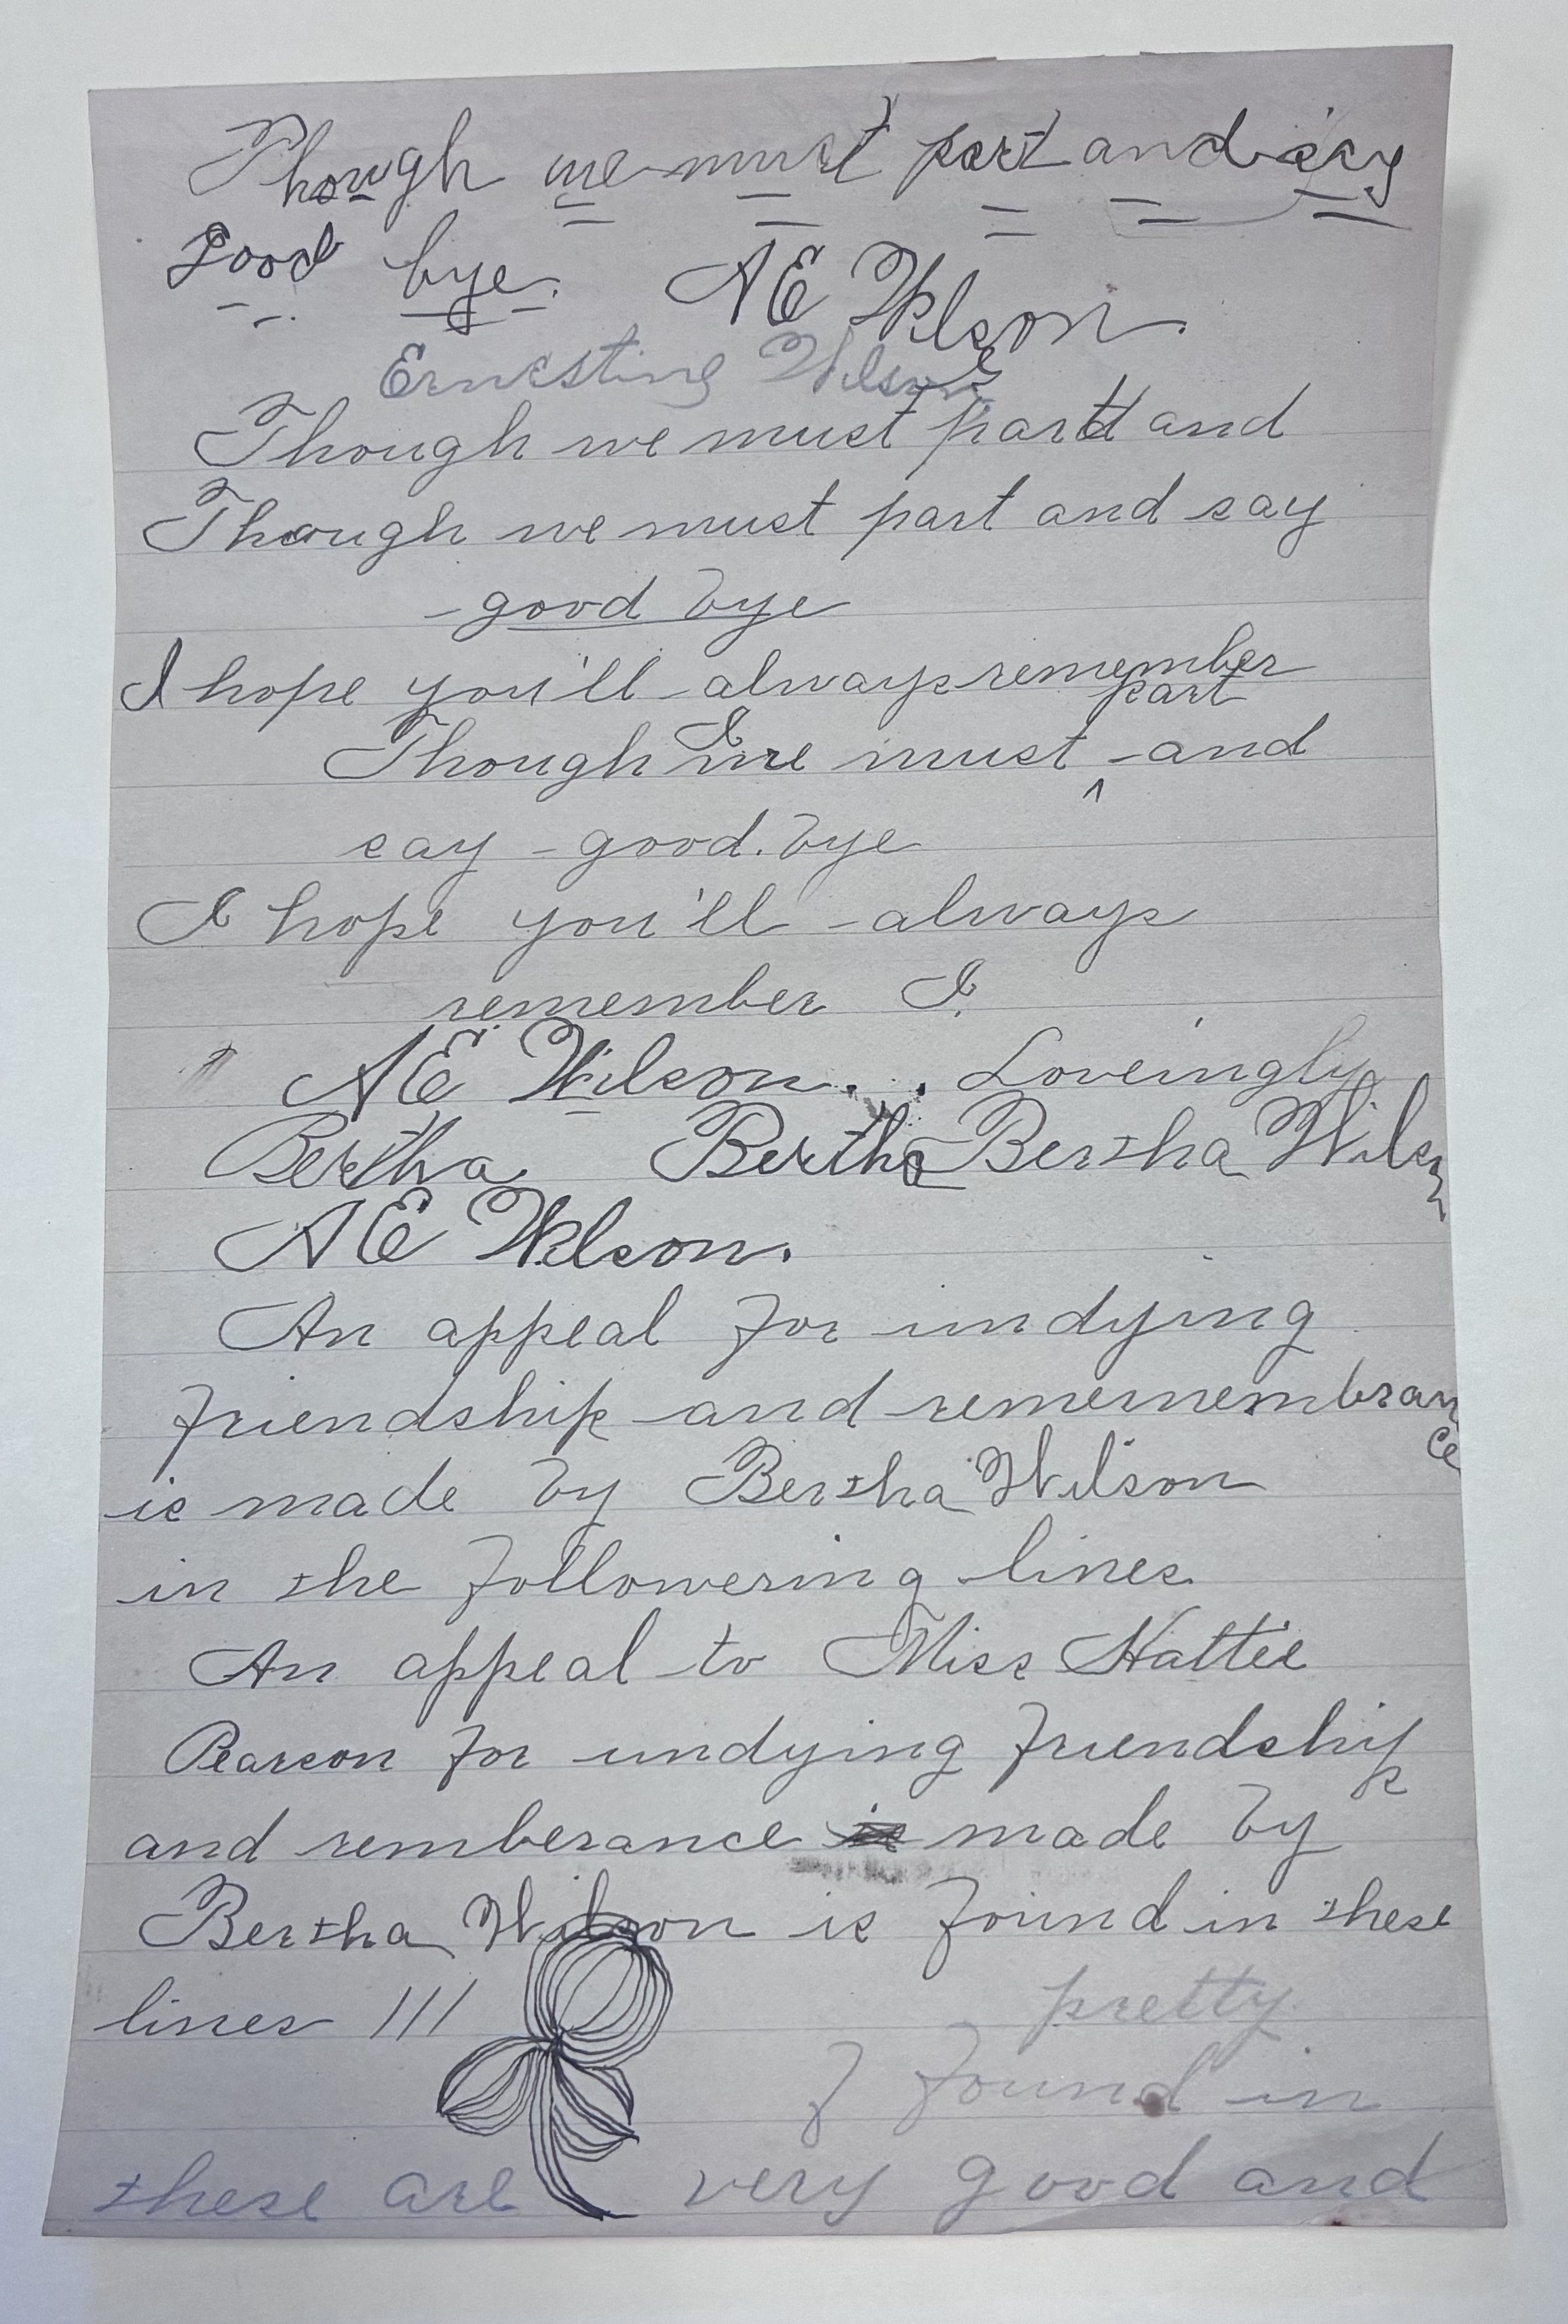 Though we must part and say
Good bye. A E Wilson.
Ernestine Wilson
Though we must part and
Though we must part and say
good bye
I hope you'll always remember
part
I
Though we must ^ and
say good.bye
I hope you'll always
remember I.
A E Wilson. . Loveingly
Bertha Bertha Bertha Wilson
A E Wilson.
An appeal for undying
friendship and rememembrance
is made by Bertha Wilson
in the followering lines.
An appeal to Miss Hattie
Pearson for undying friendship
and remberance is made by
Bertha Wilson is found in these
lines !!!
pretty
f found in
these are very good and